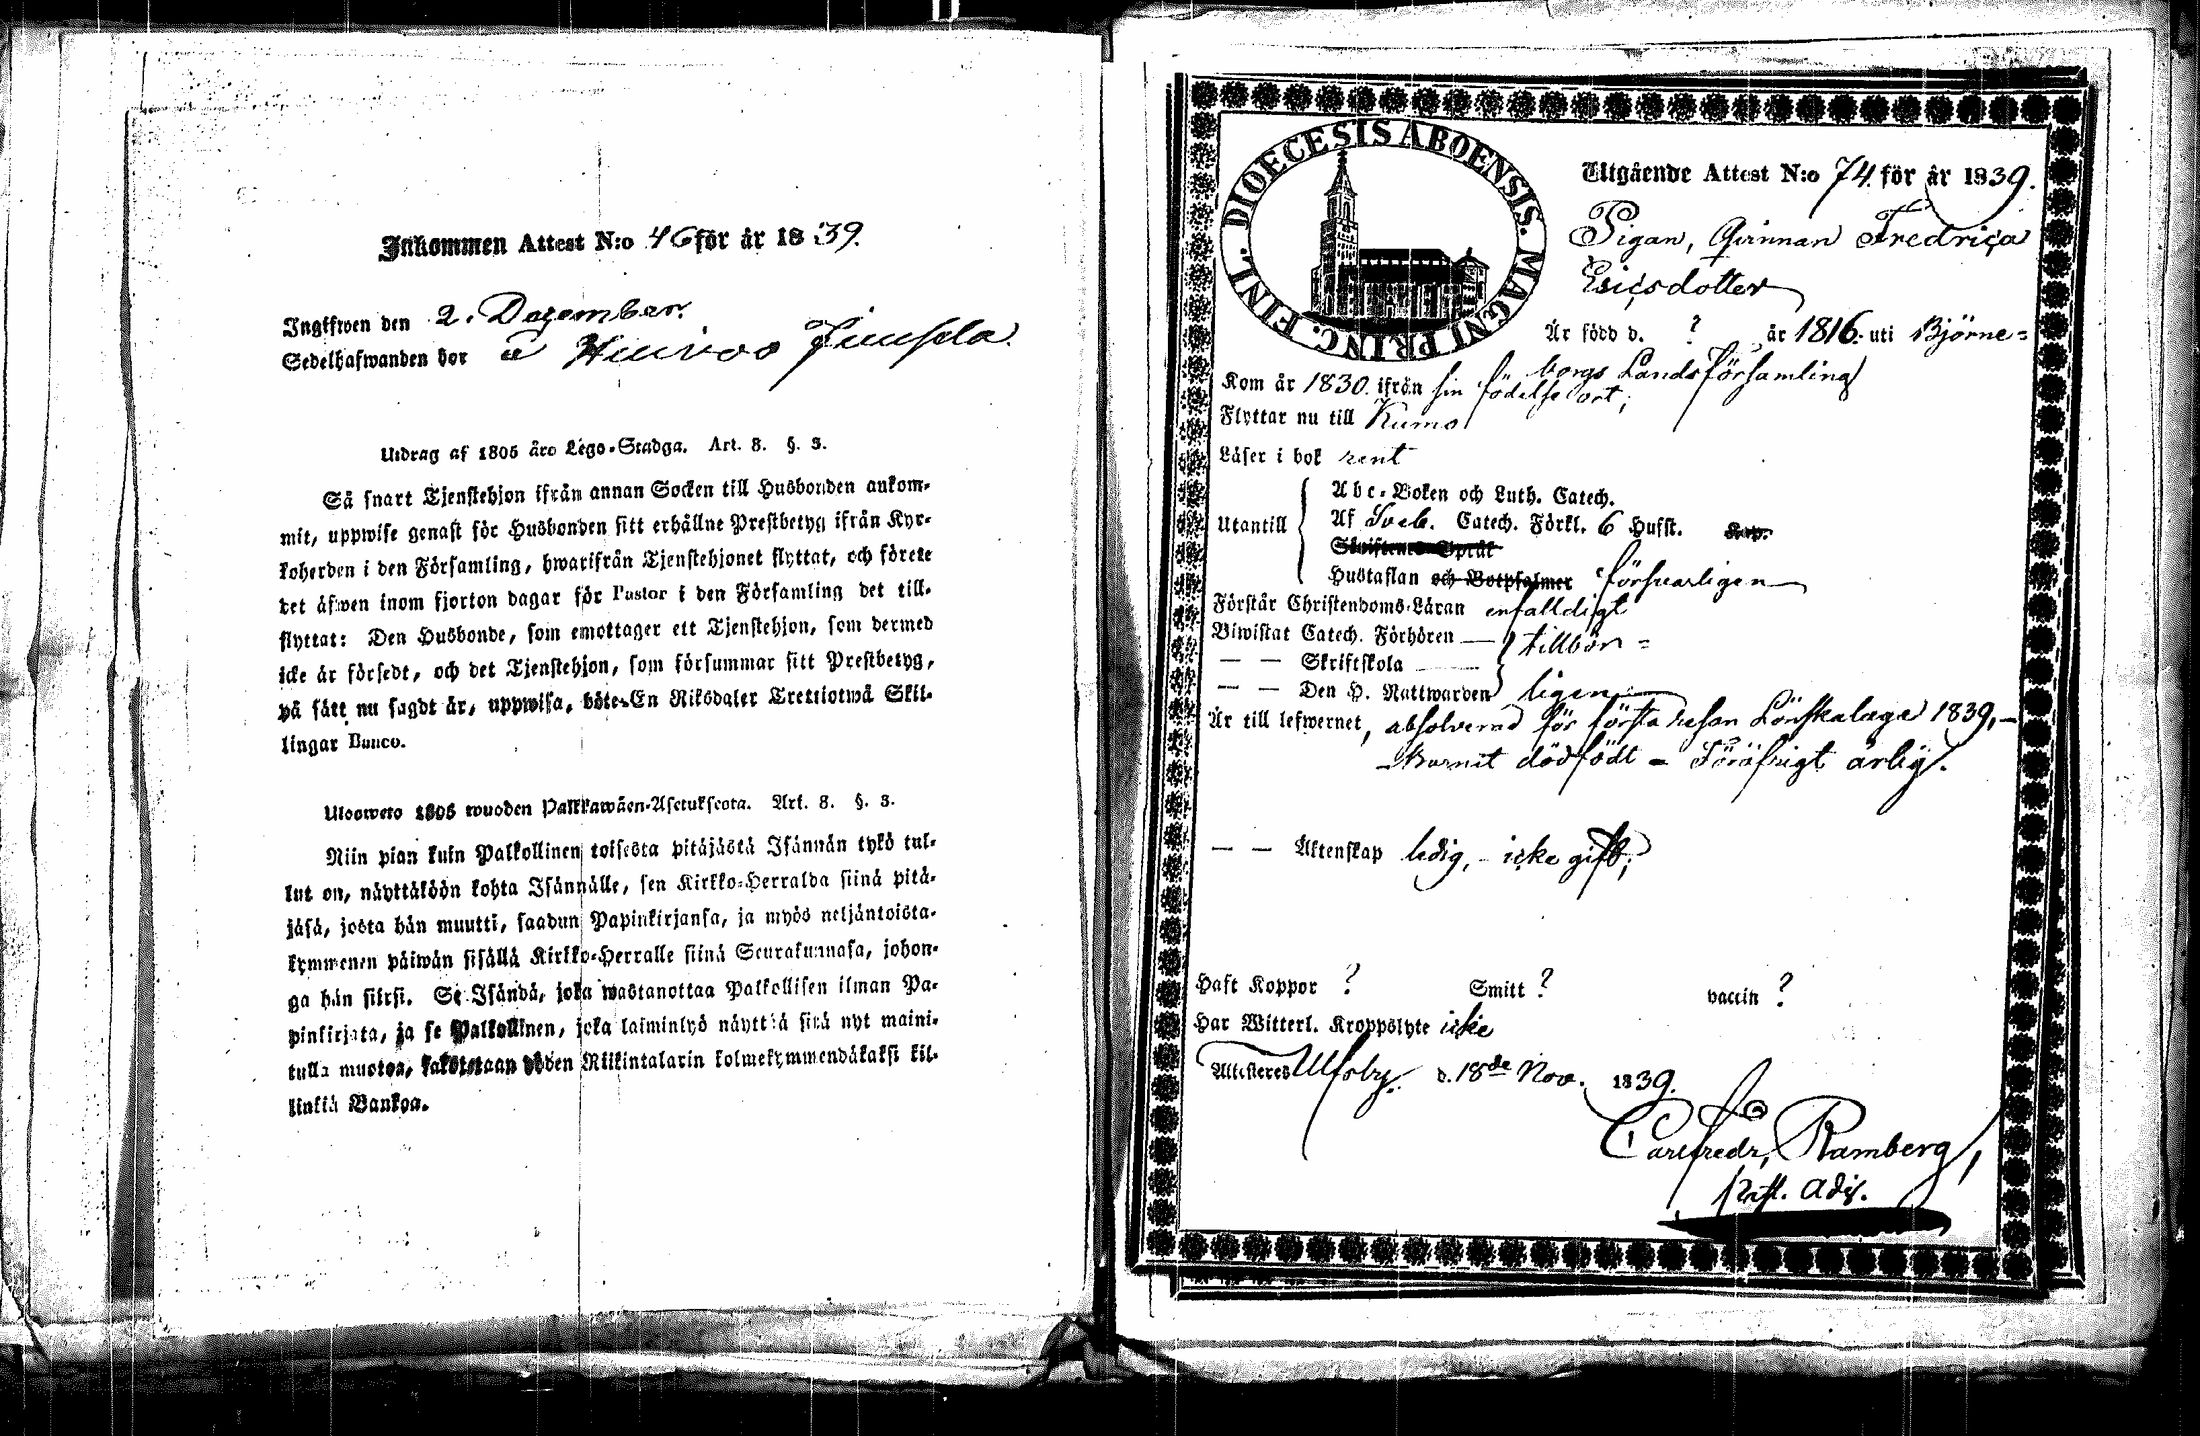 Inkommen Attest N:o 46 för år 1839.
Ingifwen den 2. Dezember.
Sedelhafwanden bor
Utdrag af 1805 års Lego-Stadga. Art. 8. §. 3.
Så snart Tjenstehjon ifrån annan Socken till Husbonden ankom-
mit, uppwise genast för Husbonden sitt erhållne Prestbetyg ifrån Kyr-
koherden i den Församling, hwarifrån Tjenstehjonet flyttat, och förete
det äfwen inom fjorton dagar för Pastor i den Församling det till-
flyttat: Den Husbonde, som emottager ett Tjenstehjon, som dermed
icke är försedt, och det Tjenstehjon, som försummar sitt Prestbetyg,
på sätt nu sagdt är, uppwisa, böte En Riksdaler Trettiotwå Skil-
lingar Banco.
Ulosweto 1805 wuoden Palkkawäen-Asetuksesta. Art. 8. §. 3.
Niin pian kuin Palkollinen toisesta pitäjästä Isännän tykö tul-
lut on, näyttäköön kohta Isännälle, sen Kirkko-Herralda siinä pitä-
jäsä, josta hän muutti, saadun Papinkirjansa, ja myös neljäntoista-
kymmenen päiwän sisällä Kirkko-Herralle siinä Seurakunnasa, johon-
ga hän siirsi. Se Isändä, joka wastanottaa Palkollisen ilman Pa-
pinkirjata, ja se Palkollinen, joka laiminlyö näyttää sitä nyt maini-
tulla muotoa, sakotetaan yhden Riikintalarin kolmekymmendäkaksi kil-
linkiä Bankoa.
DIOECESIS ABOENSIS. MAGNI PRINC. FINL.
Utgående Attest N:o 74. för år 1839.
Pigan, Qvinnan Fredrica
Ericsdotter
Är född d. ? år 1816. uti Björne=
borgs Landsförsamling
Kom år 1830. ifrån sin födelse ort;
Flyttar nu till Kumo
Läser i bok rent
Utantill
Abc-Boken och Luth. Catech.
Af Sveb. Catech. Förkl. 6 Hufst. Kap.
Skriftenes Språk
Hustaflan och Botpsalmer försvarligen
Förstår Christendoms-Läran enfalldigt
Biwistat Catech. Förhören — tillbör=
— — Skriftskola
— — Den H. Nattwarden ligen
Är till lefwernet, absolverad för första resan Lönskaläge 1839,—
— Barnet dödfödt — Föröfrigt ärlig.
— — Äktenskap ledig, - icke gift;
Haft Koppor ? Smitt ? vaccin ?
Har Witterl. Kroppslyte icke
Attesteres Ulfsby. d. 18de Nov. 1839.
Carl Fredr. Ramberg,
Past. Adj.